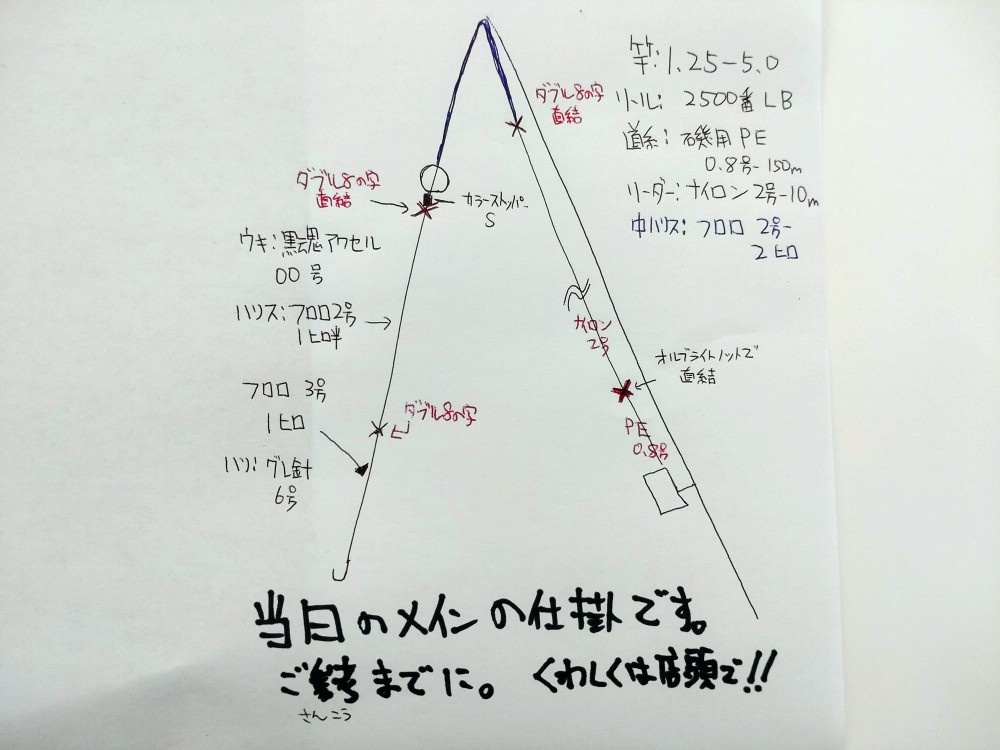 竿:1.25-5.0
リール: 2500番 LB
道糸: 磯用PE
0.8号-150m
リーダー:ナイロン 2号-10m
中ハリス: フロロ 2号-
2ヒロ
ダブル8の字
直結
ダブル8の字
直結
カラーストッパー
S
ウキ:黒魂アクセル
00号
ハリス:フロロ2号
1ヒロ半
ナイロン
2号
オルブライトノットで
直結
フロロ 3号
1ヒロ
ダブル8の字
PE
0.8号
ハリ: グレ針
6号
当日のメインの仕掛です。
ご参考までに。 くわしくは店頭で!!
さんこう